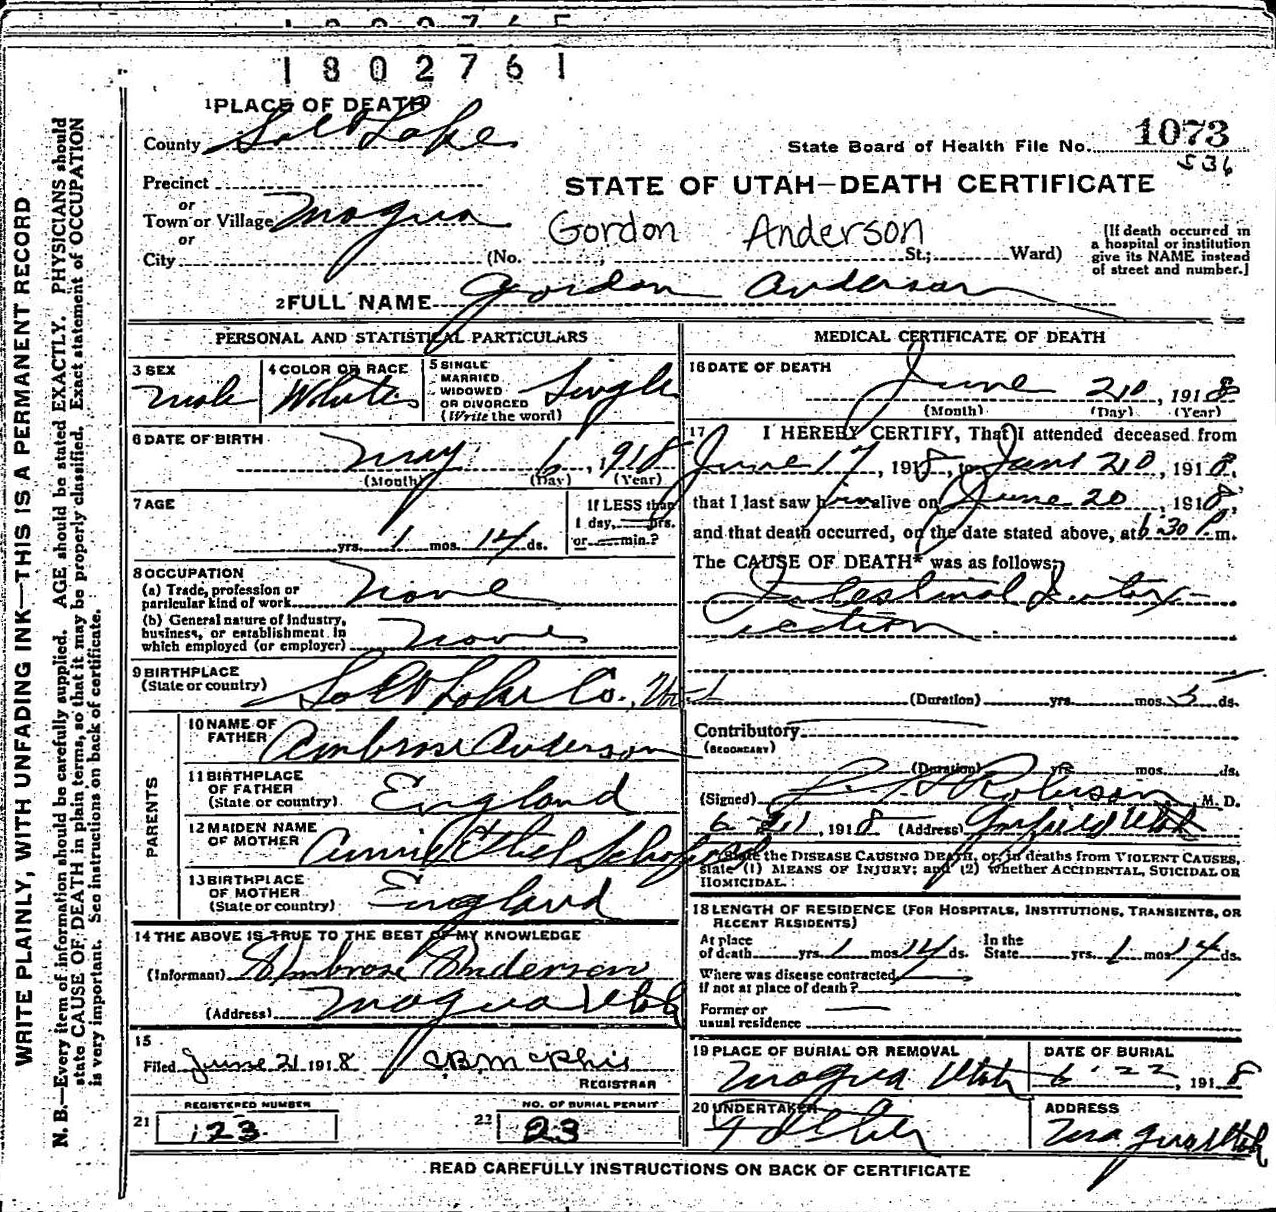 1802761
1 PLACE OF DEATH
County Salt Lake
State Board of Health File No. 1073
536
Precinct
or
STATE OF UTAH—DEATH CERTIFICATE
Town or Village Magna
or
Gordon Anderson
City (No. St.; Ward)
[If death occurred in
a hospital or institution
give its NAME instead
of street and number.]
2 FULL NAME Gordon Anderson
PERSONAL AND STATISTICAL PARTICULARS
3 SEX
male
4 COLOR OR RACE
White
5 SINGLE
MARRIED
WIDOWED
OR DIVORCED
(Write the word)
Single
6 DATE OF BIRTH
May 6, 1918
(Month) (Day) (Year)
7 AGE
yrs. 1 mos. 14 ds.
If LESS than
1 day, hrs.
or min.?
8 OCCUPATION
(a) Trade, profession or
particular kind of work None
(b) General nature of industry,
business, or establishment in
which employed (or employer) None
9 BIRTHPLACE
(State or country) Salt Lake Co., Utah
PARENTS
10 NAME OF
FATHER Ambrose Anderson
11 BIRTHPLACE
OF FATHER
(State or country) England
12 MAIDEN NAME
OF MOTHER Annie Ethel
13 BIRTHPLACE
OF MOTHER
(State or country) England
14 THE ABOVE IS TRUE TO THE BEST OF MY KNOWLEDGE
(Informant) Ambrose Anderson
(Address) Magna Utah
15
Filed June 21 1918
REGISTRAR
REGISTERED NUMBER
21 123
NO. OF BURIAL PERMIT
22 23
MEDICAL CERTIFICATE OF DEATH
16 DATE OF DEATH
June 20, 1918
(Month) (Day) (Year)
17 I HEREBY CERTIFY, That I attended deceased from
June 17, 1918, to June 20, 1918,
that I last saw him alive on June 20 1918,
and that death occurred, on the date stated above, at 6:30 P. m.
The CAUSE OF DEATH* was as follows:
Intestinal Intox-
ication
(Duration) yrs. mos. 5 ds.
Contributory
(SECONDARY)
(Duration) yrs. mos. ds.
(Signed) Robinson, M. D.
6-21, 1918 (Address) Garfield Utah
*State the DISEASE CAUSING DEATH, or, in deaths from VIOLENT CAUSES,
state (1) MEANS OF INJURY; and (2) whether ACCIDENTAL, SUICIDAL OR
HOMICIDAL.
18 LENGTH OF RESIDENCE (FOR HOSPITALS, INSTITUTIONS, TRANSIENTS, OR
RECENT RESIDENTS)
At place
of death yrs. 1 mos. 14 ds.
In the
State yrs. 1 mos. 14 ds.
Where was disease contracted,
if not at place of death?
Former or
usual residence
19 PLACE OF BURIAL OR REMOVAL
Magna Utah
DATE OF BURIAL
6-22, 1918
20 UNDERTAKER
Father
ADDRESS
Magna Utah
READ CAREFULLY INSTRUCTIONS ON BACK OF CERTIFICATE
WRITE PLAINLY, WITH UNFADING INK—THIS IS A PERMANENT RECORD
N. B.—Every item of information should be carefully supplied. AGE should be stated EXACTLY. PHYSICIANS should
state CAUSE OF DEATH in plain terms, so that it may be properly classified. Exact statement of OCCUPATION
is very important. See instructions on back of certificate.